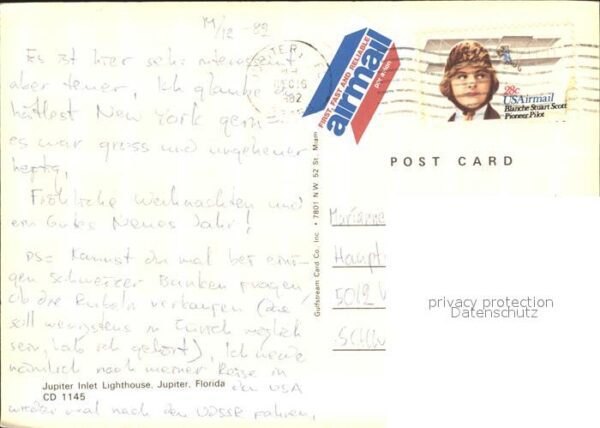 M/12 - 82
Es ist hier sehr interessant
aber teuer, Ich glaube
hättest New York gern
es war gross und ungeheuer
heftig,
Fröhliche Weihnachten und
ein Gutes Neues Jahr!
PS= Kannst du mal bei eini-
gen schweizer Banken fragen,
ob die Rubeln verkaufen (das
soll wenigstens in Zürich möglich
sein, hab ich gehört), Ich
nämlich nach meiner Reise in
den USA
wieder mal nach den UDSSR fahren,
Jupiter Inlet Lighthouse, Jupiter, Florida
CD 1145
Gulfstream Card Co. Inc. • 7801 N.W. 52 St. Miam
FIRST, FAST AND RELIABLE
airmail
par avion
TER,
DEC 6
1982
28c
USAirmail
Blanche Stuart Scott
Pioneer Pilot
POST CARD
Marianne
Haupt
5012
SCHW
privacy protection
Datenschutz